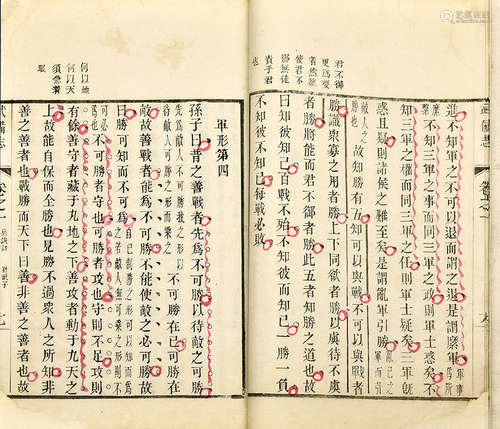 君不得
更為要
者然欲
使君不
御無徒
責于君
也
進不知軍之不可以退而謂之退是謂縻軍
縻不知三軍之事而同三軍之政則軍士惑矣不
知三軍之權而同三軍之任則軍士疑矣三軍既
惑且疑則諸侯之難至矣是謂亂軍引勝
敵人之勝故知勝有五知可以與戰不可以與戰者
勝識衆寡之用者勝上下同欲者勝以虞待不虞
者勝將能而君不御者勝此五者知勝之道也故
曰知彼知己百戰不殆不知彼而知己一勝一負
不知彼不知己每戰必敗
何以地
何以天
須當着
眼
軍形第四
孫子曰昔之善戰者先為不可勝以待敵之可勝
先為敵人不可勝我之形以待敵人可勝之形而乘之不可勝在己可勝在
敵故善戰者能為不可勝不能使敵之必可勝故
曰勝可知而不可為
不可勝者守也可勝者攻也守則不足攻則
有餘善守者藏于九地之下善攻者動于九天之
上故能自保而全勝也見勝不過衆人之所知非
善之善者也戰勝而天下曰善非善之善者也故
武備志
卷之一
兵訣評
孫子